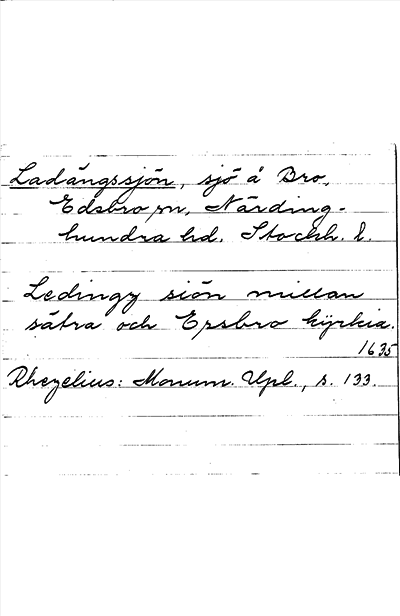 Ladängssjön, sjö å Bro,
Edsbro sn, Närding-
hundra hd. Stockh. l.
Ledingz siön millan
sätra och Epsbro kyrkia.
1635
Rhezelius: Monum. Upl., s. 133.